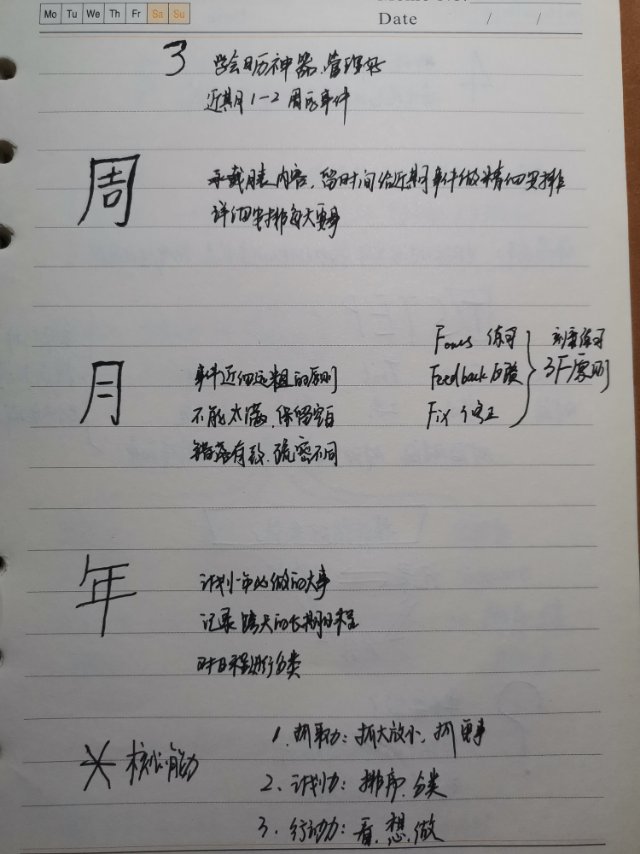 Mo Tu We Th Fr Sa Su
Date / /
3 学会日历神器、管理好
近期月1-2周的事件
周
承载月表内容，留时间给近期可事件做精细安排
详细安排每天要事
月
事件近细远粗的原则
不能太满、保留空白
错落有致、疏密不同
Focus 练习
Feedback 反馈
Fix 修正
刻意练习
3F原则
年
计划一年必做的大事
记录跨天的长期日程
对日程进行分类
核心能力
1、抓取力：抓大放小、抓要事
2、计划力：排序、分类
3、行动力：看、想、做